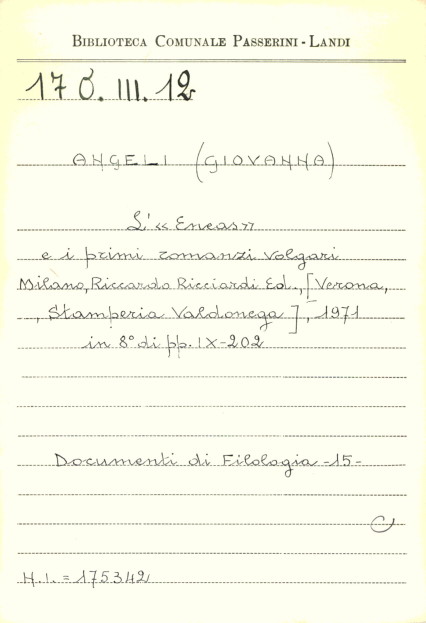 BIBLIOTECA COMUNALE PASSERINI - LANDI
17 O. III. 12
ANGELI (GIOVANNA)
L'«Eneas»
e i primi romanzi volgari
Milano, Riccardo Ricciardi Ed., [Verona,
, Stamperia Valdonega], 1971
in 8° di pp. IX-202
Documenti di Filologia -15-
N.I. = 175342